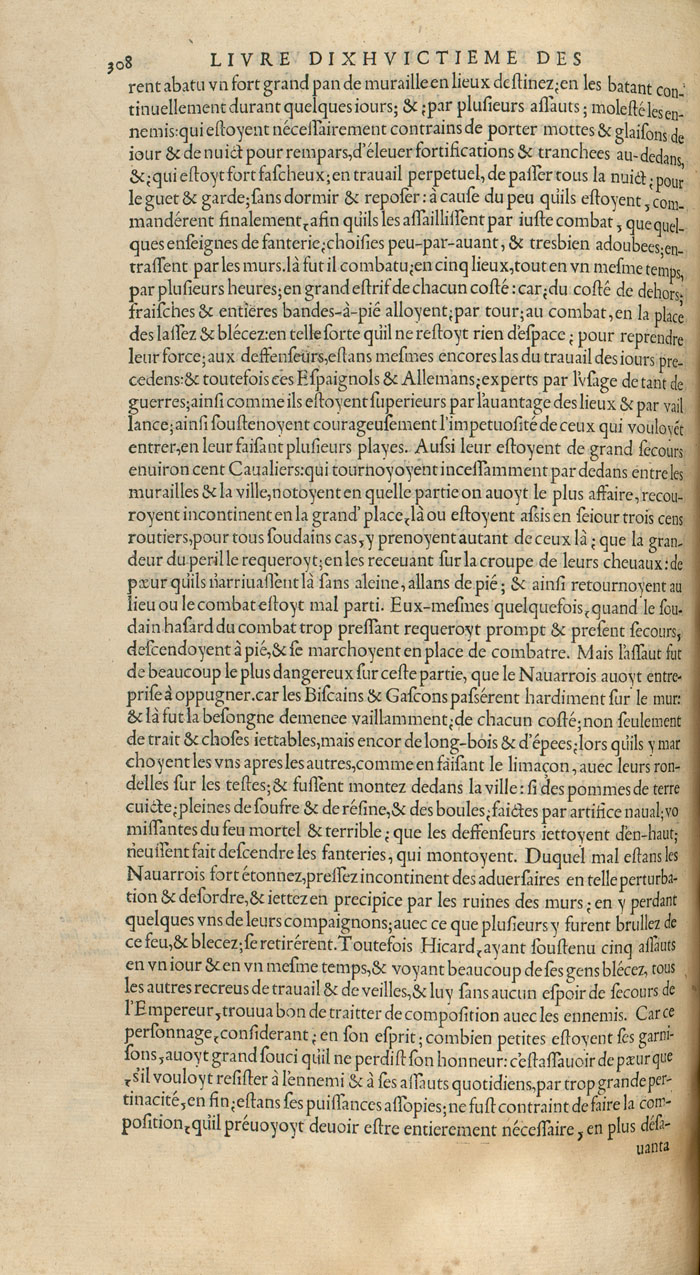 308 LIVRE DIXHVICTIEME DES
rent abatu vn fort grand pan de muraille en lieux destinez; en les batant con-
tinuellement durant quelques iours; & ; par plusieurs assauts; molesté les en-
nemis: qui estoyent nécessairement contrains de porter mottes & glaisons de
iour & de nuict pour rempars, d'éleuer fortifications & tranchees au-dedans,
&; qui estoyt fort fascheux; en trauail perpetuel, de passer tous la nuict; pour
le guet & garde; sans dormir & reposer: à cause du peu qu'ils estoyent, com-
mandérent finalement, afin qu'ils les assaillissent par iuste combat, que quel-
ques enseignes de fanterie; choisies peu-par-auant, & tresbien adoubees; en-
trassent par les murs. là fut il combatu; en cinq lieux, tout en vn mesme temps,
par plusieurs heures; en grand estrif de chacun costé: car; du costé de dehors;
fraisches & entiéres bandes-à-pié alloyent; par tour; au combat, en la place
des lassez & blécez: en telle sorte qu'il ne restoyt rien d'espace; pour reprendre
leur force; aux deffenseurs, estans mesmes encores las du trauail des iours pre-
cedens: & toutefois ces Espaignols & Allemans; experts par l'vsage de tant de
guerres; ainsi comme ils estoyent superieurs par l'auantage des lieux & par vail
lance; ainsi soustenoyent courageusement l'impetuosité de ceux qui vouloyēt
entrer, en leur faisant plusieurs playes. Aussi leur estoyent de grand secours
enuiron cent Caualiers: qui tournoyoyent incessamment par dedans entre les
murailles & la ville, notoyent en quelle partie on auoyt le plus affaire, recou-
royent incontinent en la grand' place, là ou estoyent assis en seiour trois cens
routiers, pour tous soudains cas, y prenoyent autant de ceux là; que la gran-
deur du peril le requeroyt; en les receuant sur la croupe de leurs cheuaux: de
pœur qu'ils n'arriuassent là sans aleine, allans de pié; & ainsi retournoyent au
lieu ou le combat estoyt mal parti. Eux-mesmes quelquefois, quand le sou-
dain hasard du combat trop pressant requeroyt prompt & present secours,
descendoyent à pié, & se marchoyent en place de combatre. Mais l'assaut fut
de beaucoup le plus dangereux sur ceste partie, que le Nauarrois auoyt entre-
prise à oppugner. car les Biscains & Gascons passérent hardiment sur le mur:
& là fut la besongne demenee vaillamment; de chacun costé; non seulement
de trait & choses iettables, mais encor de long-bois & d'épees; lors qu'ils y mar
choyent les vns apres les autres, comme en faisant le limaçon, auec leurs ron-
delles sur les testes; & fussent montez dedans la ville: si des pommes de terre
cuicte; pleines de soufre & de résine, & des boules; faictes par artifice naual; vo
missantes du feu mortel & terrible; que les deffenseurs iettoyent d'en-haut;
n'eussent fait descendre les fanteries, qui montoyent. Duquel mal estans les
Nauarrois fort étonnez, pressez incontinent des aduersaires en telle perturba-
tion & desordre, & iettez en precipice par les ruines des murs; en y perdant
quelques vns de leurs compaignons; auec ce que plusieurs y furent brullez de
ce feu, & blecez; se retirérent. Toutefois Hicard, ayant soustenu cinq assauts
en vn iour & en vn mesme temps, & voyant beaucoup de ses gens blécez, tous
les autres recreus de trauail & de veilles, & luy sans aucun espoir de secours de
l'Empereur, trouua bon de traitter de composition auec les ennemis. Car ce
personnage, considerant; en son esprit; combien petites estoyent ses garni-
sons, auoyt grand souci qu'il ne perdist son honneur: c'est assauoir de pœur que
, s'il vouloyt resister à l'ennemi & à ses assauts quotidiens, par trop grande per-
tinacité, en fin; estans ses puissances assopies; ne fust contraint de faire la com-
position, qu'il préuoyoyt deuoir estre entierement nécessaire, en plus désa-
uanta